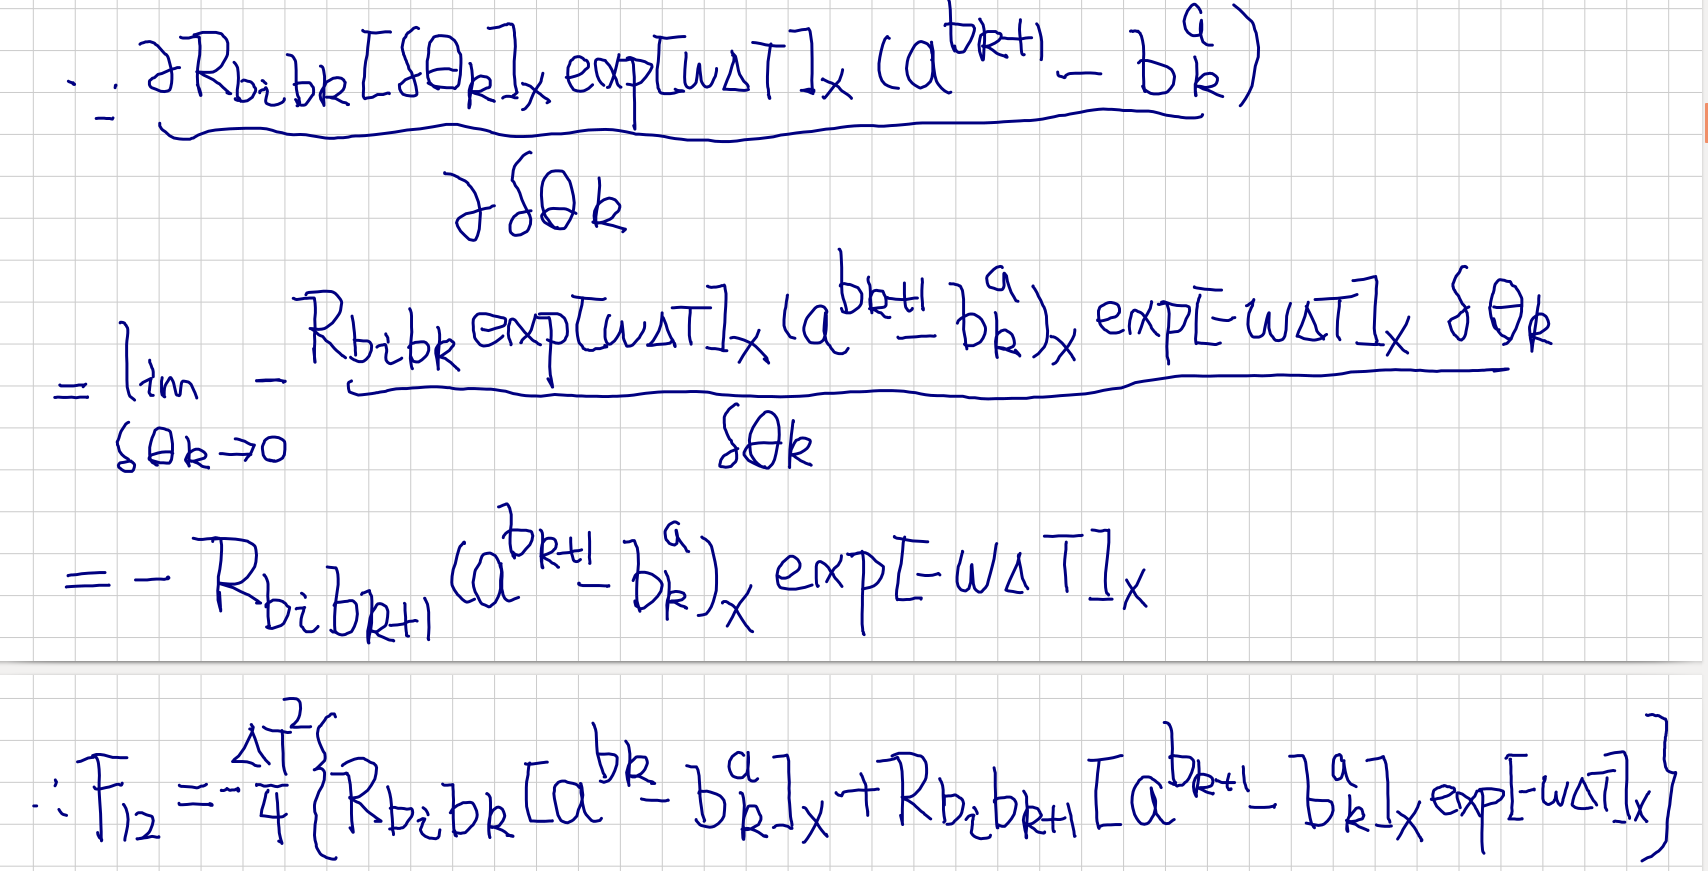 ∵ ∂R_{b_i b_k}[δθ_k]_× exp[w∆T]_× (a^{b_{k+1}} − b_k^a)
∂δθ_k
= lim_{δθ_k→0} − R_{b_i b_k} exp[w∆T]_× (a^{b_{k+1}} − b_k^a)_× exp[−w∆T]_× δθ_k
δθ_k
= − R_{b_i b_{k+1}} (a^{b_{k+1}} − b_k^a)_× exp[−w∆T]_×
∴ F_{12} = −∆T²/4 {R_{b_i b_k} [a^{b_k} − b_k^a]_× + R_{b_i b_{k+1}} [a^{b_{k+1}} − b_k^a]_× exp[−w∆T]_×}